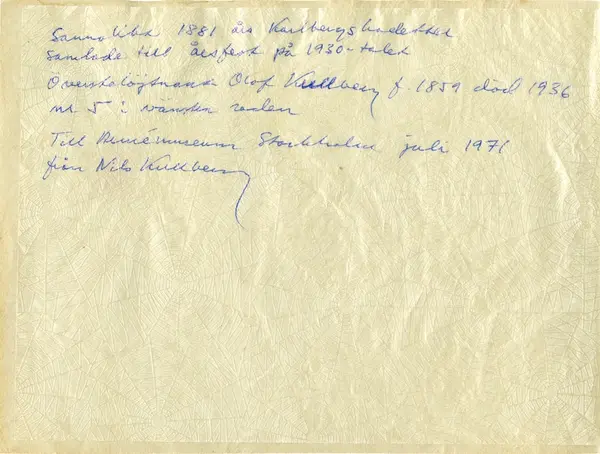 Sannolikt 1881 års Karlbergskadetter
samlade till årsfest på 1930-talet
Överstelöjtnant Olof Kullberg f. 1859 död 1936
nr 5 i vänstra raden
Till Armémuseum Stockholm juli 1971
från Nils Kullberg